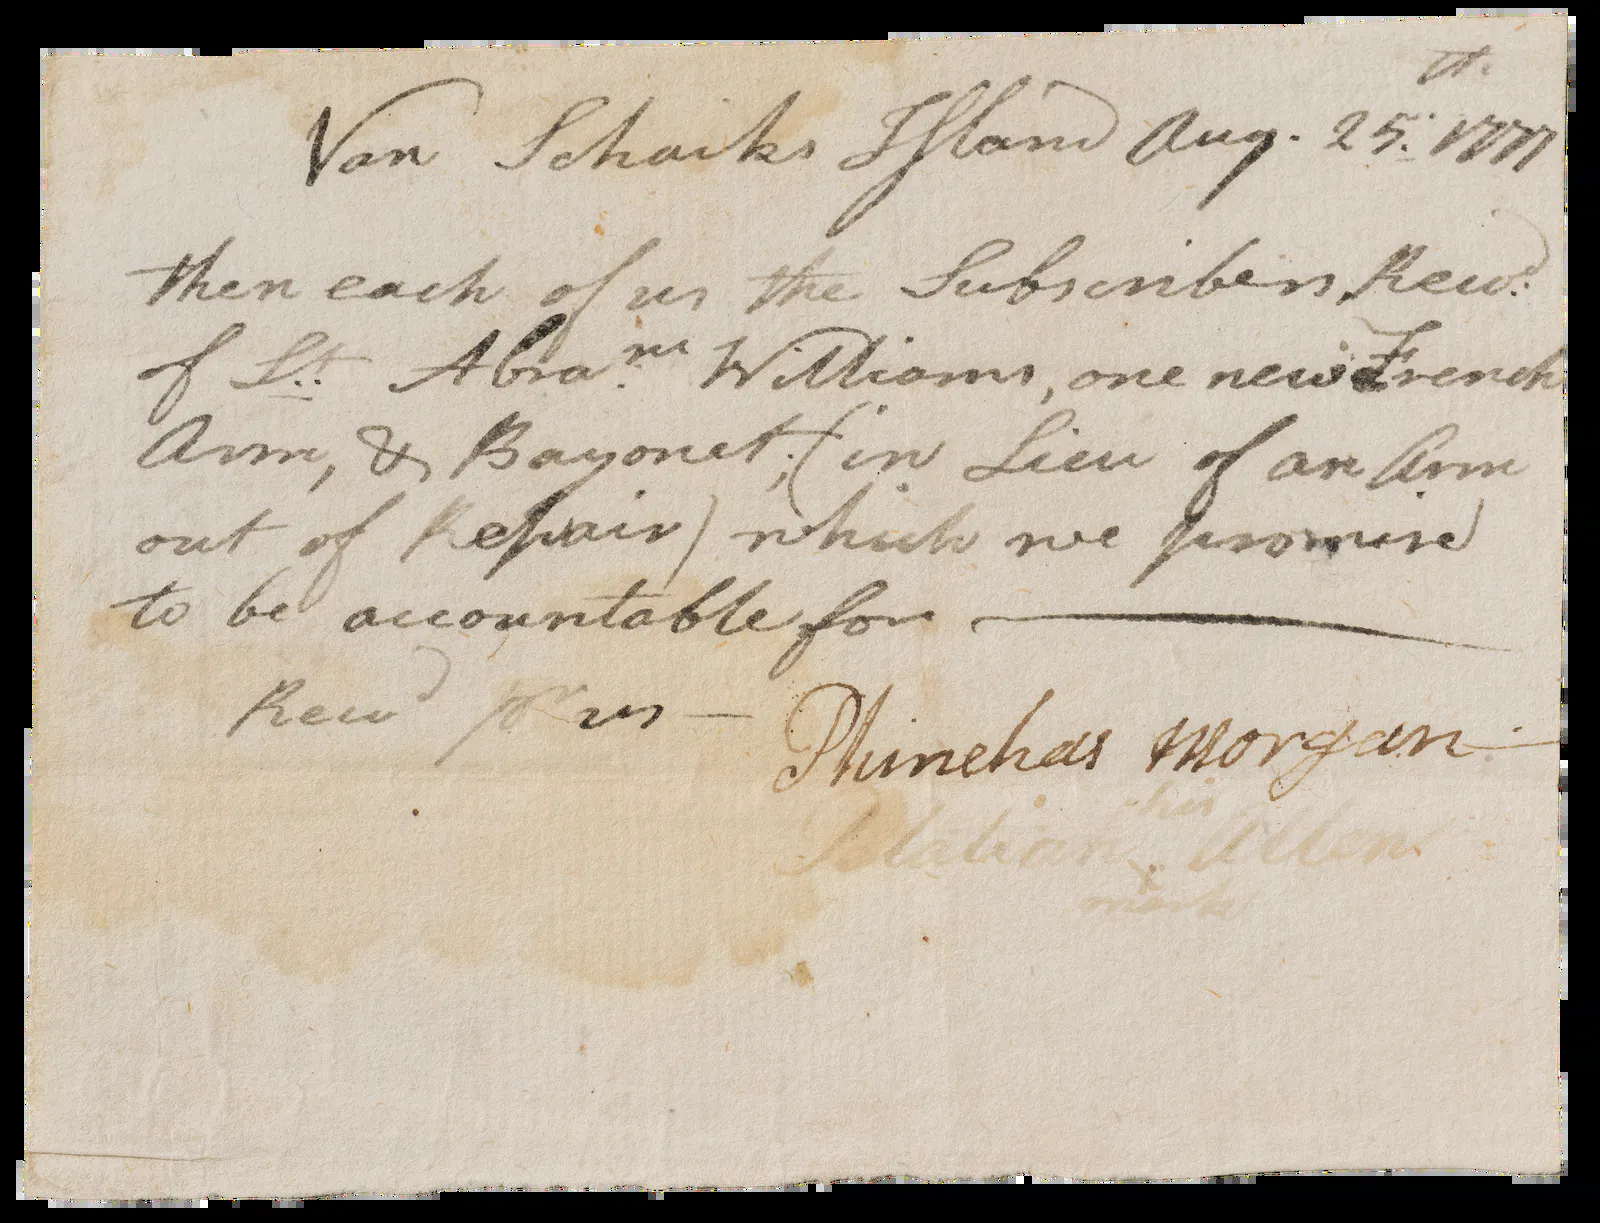 Van Schaiks Island Aug. 25th. 1777
then each of us the Subscribers, Recvd.
of Lt. Abram. Williams, one new French
Arm, & Bayonet, (in Lieu of an Arm
out of Repair) which we promise
to be accountable for
Recvd pr us — Phinehas Morgan
his
Allen
mark